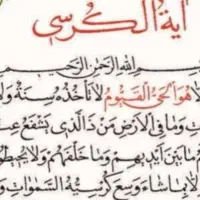 آية الكرسي
بسم الله الرحمن الرحيم
لا هو الحي القيوم لا تأخذه سنة ولا
ت وما في الأرض من ذا الذي يشفع عن
ما بين أيديهم وما خلفهم ولا يحيطو
لا بما شاء وسع كرسيه السموات و